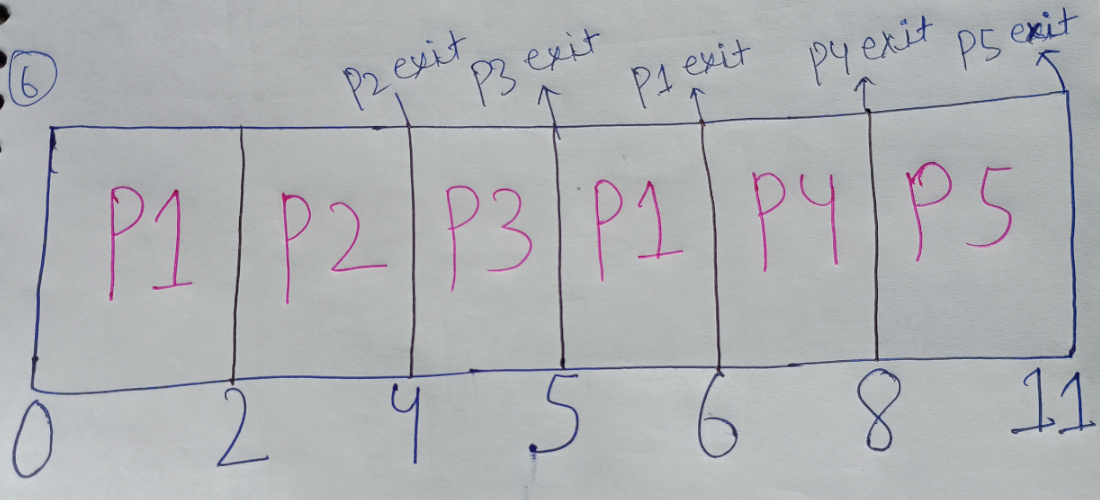 6
P2 exit P3 exit P1 exit P4 exit P5 exit
P1 P2 P3 P1 P4 P5
0 2 4 5 6 8 11